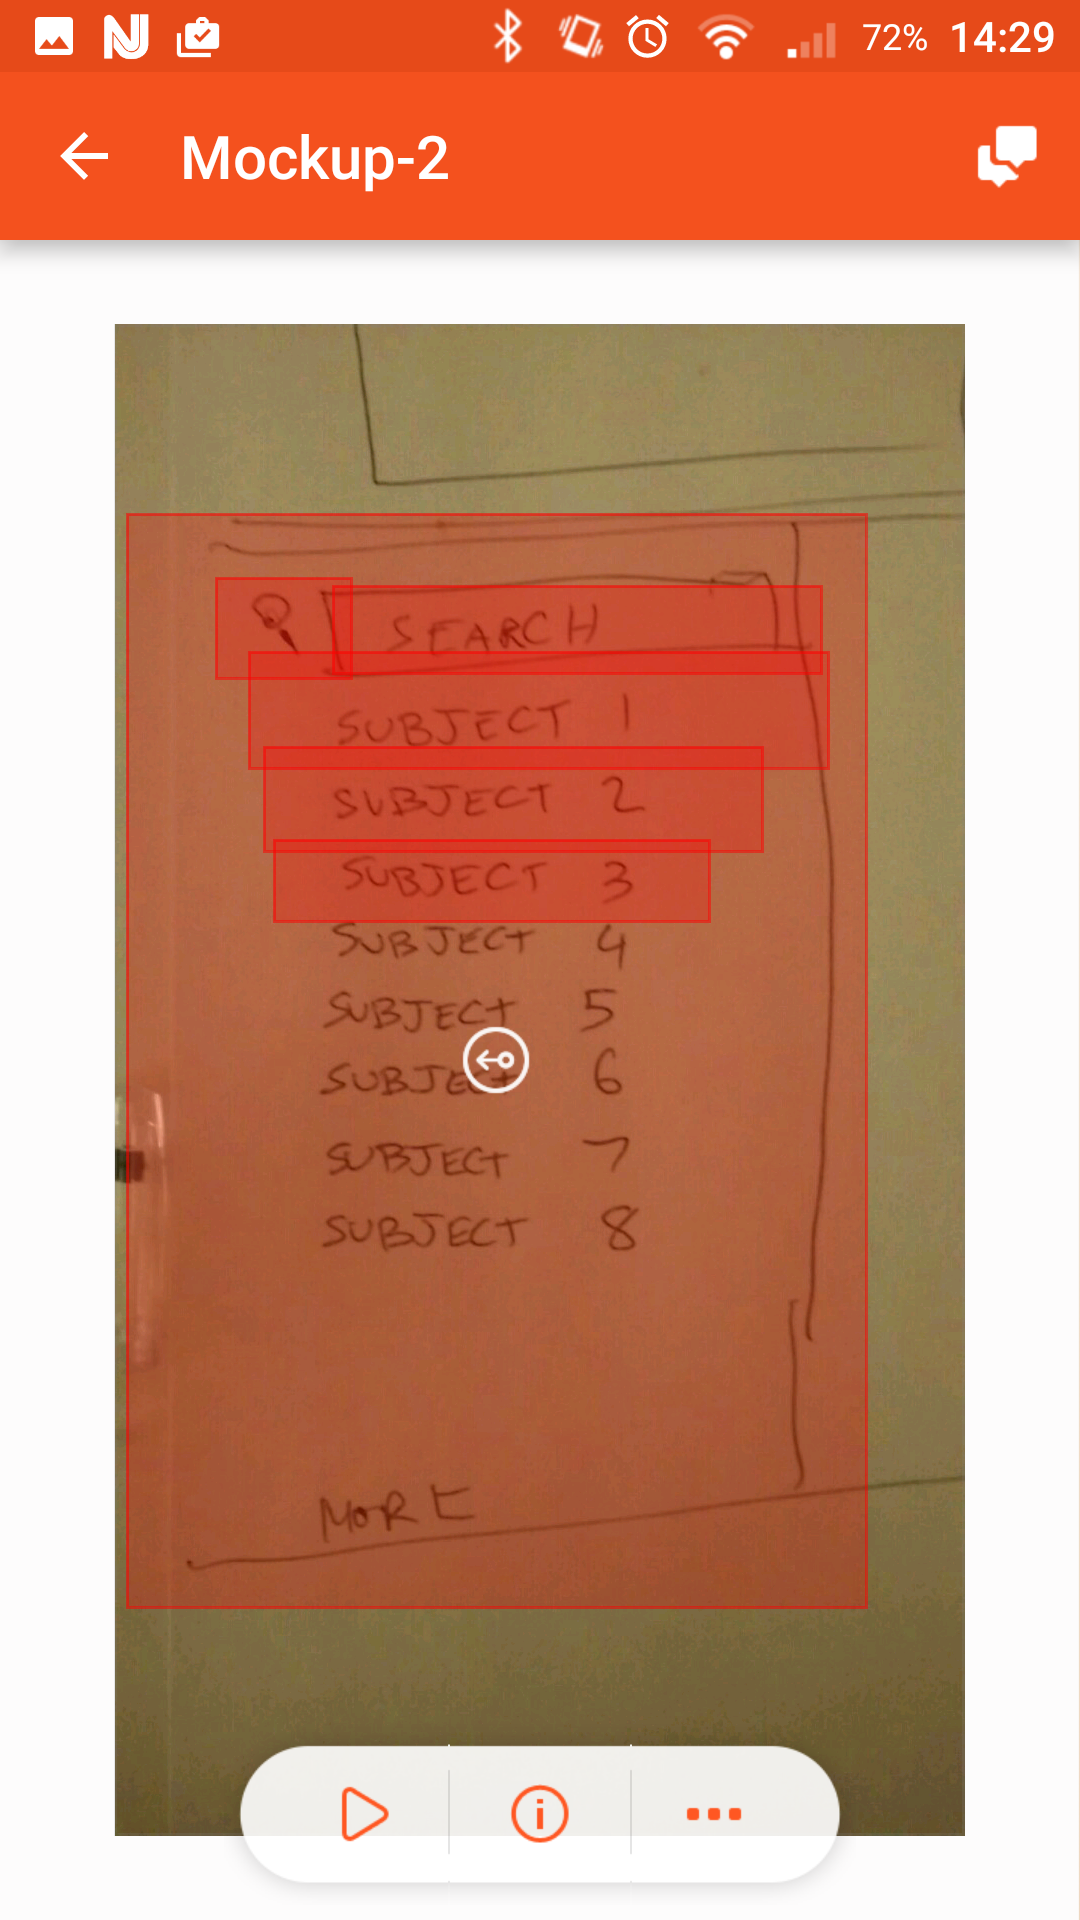 72% 14:29
Mockup-2
SEARCH
SUBJECT 1
SUBJECT 2
SUBJECT 3
SUBJECT 4
SUBJECT 5
SUBJECT 6
SUBJECT 7
SUBJECT 8
MORE